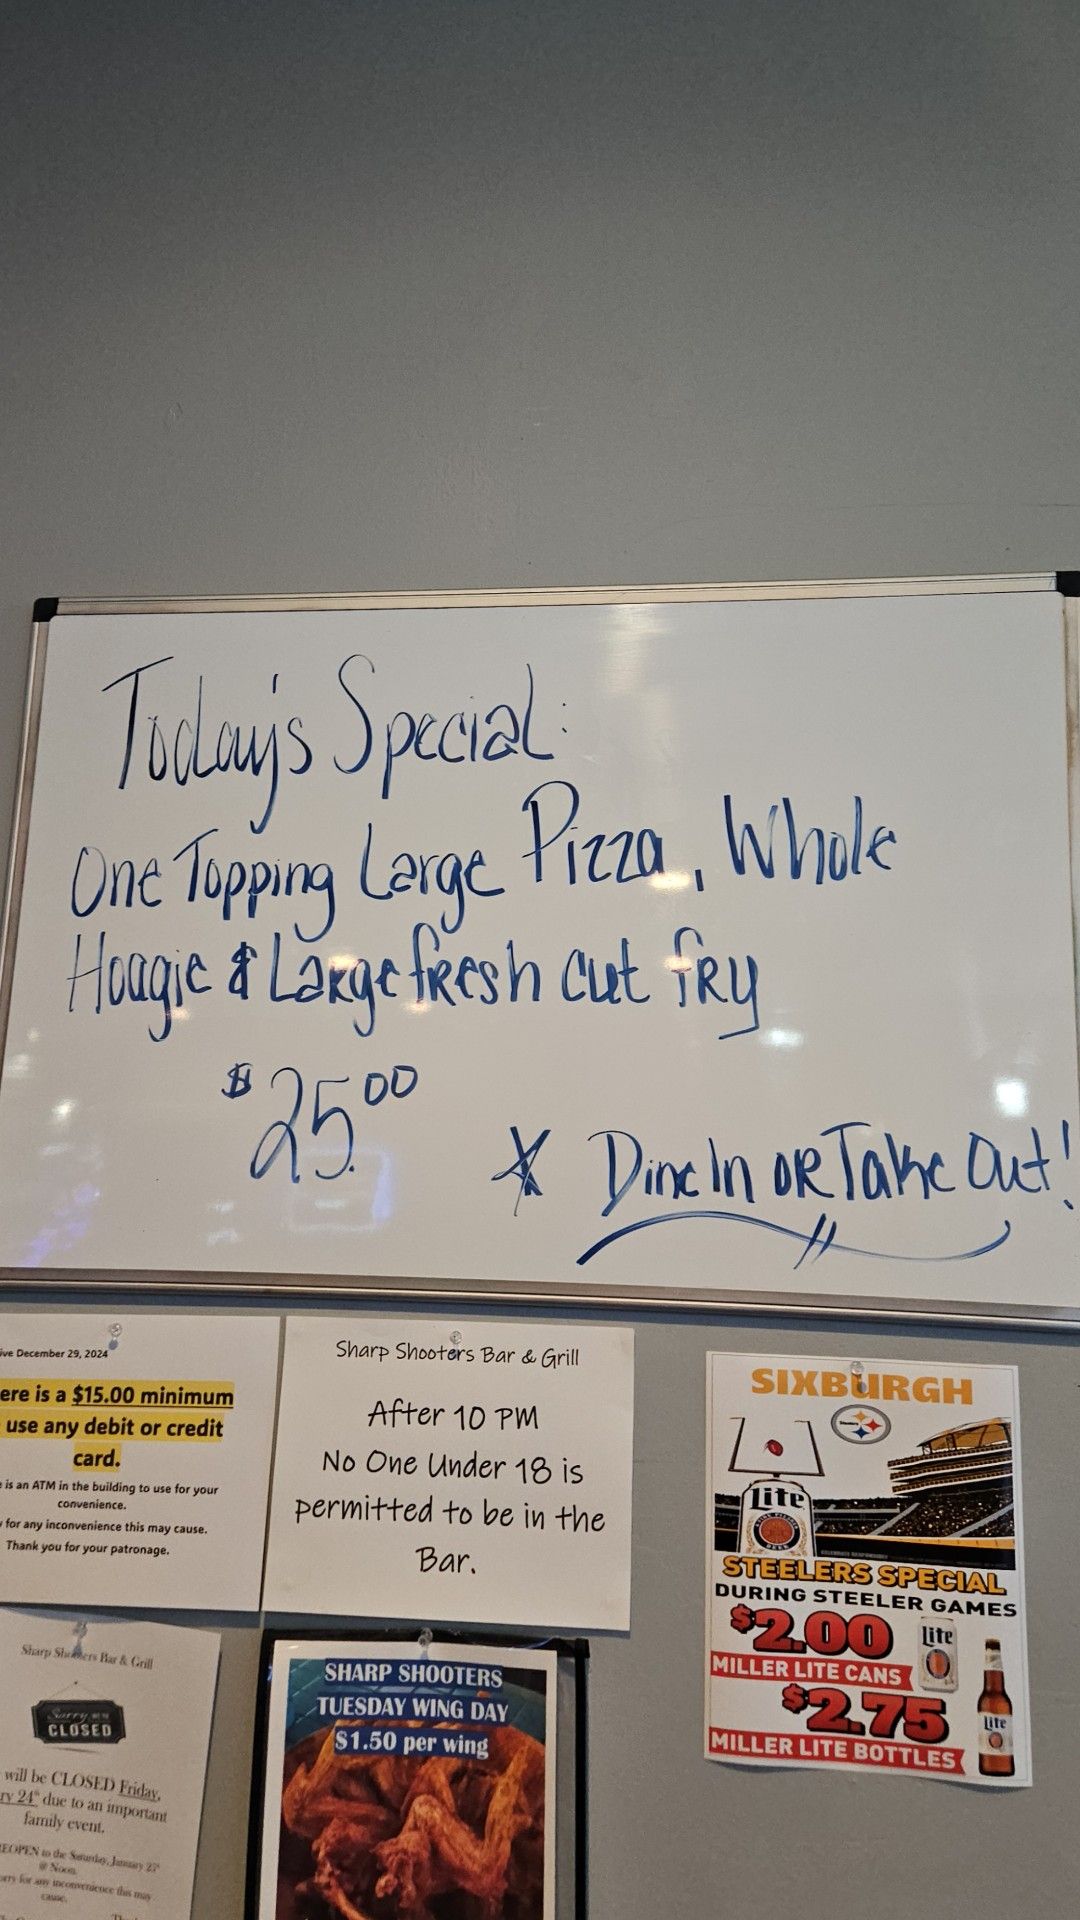 Today's Special:
One Topping Large Pizza, Whole
Hoagie & Large fresh cut fry
$25.00
* Dine In OR Take Out!
ive December 29, 2024
ere is a $15.00 minimum
use any debit or credit
card.
is an ATM in the building to use for your
convenience.
for any inconvenience this may cause.
Thank you for your patronage.
Sharp Shooters Bar & Grill
After 10 PM
No One Under 18 is
permitted to be in the
Bar.
SIXBURGH
Steelers
Lite
STEELERS SPECIAL
DURING STEELER GAMES
$2.00
Lite
MILLER LITE CANS
$2.75
Lite
MILLER LITE BOTTLES
Sharp Shooters Bar & Grill
Sorry WE'RE
CLOSED
will be CLOSED Friday,
ry 24th due to an important
family event.
EOPEN to the Saturday, January 25th
@ Noon.
orry for any inconvenience this may
cause.
SHARP SHOOTERS
TUESDAY WING DAY
$1.50 per wing